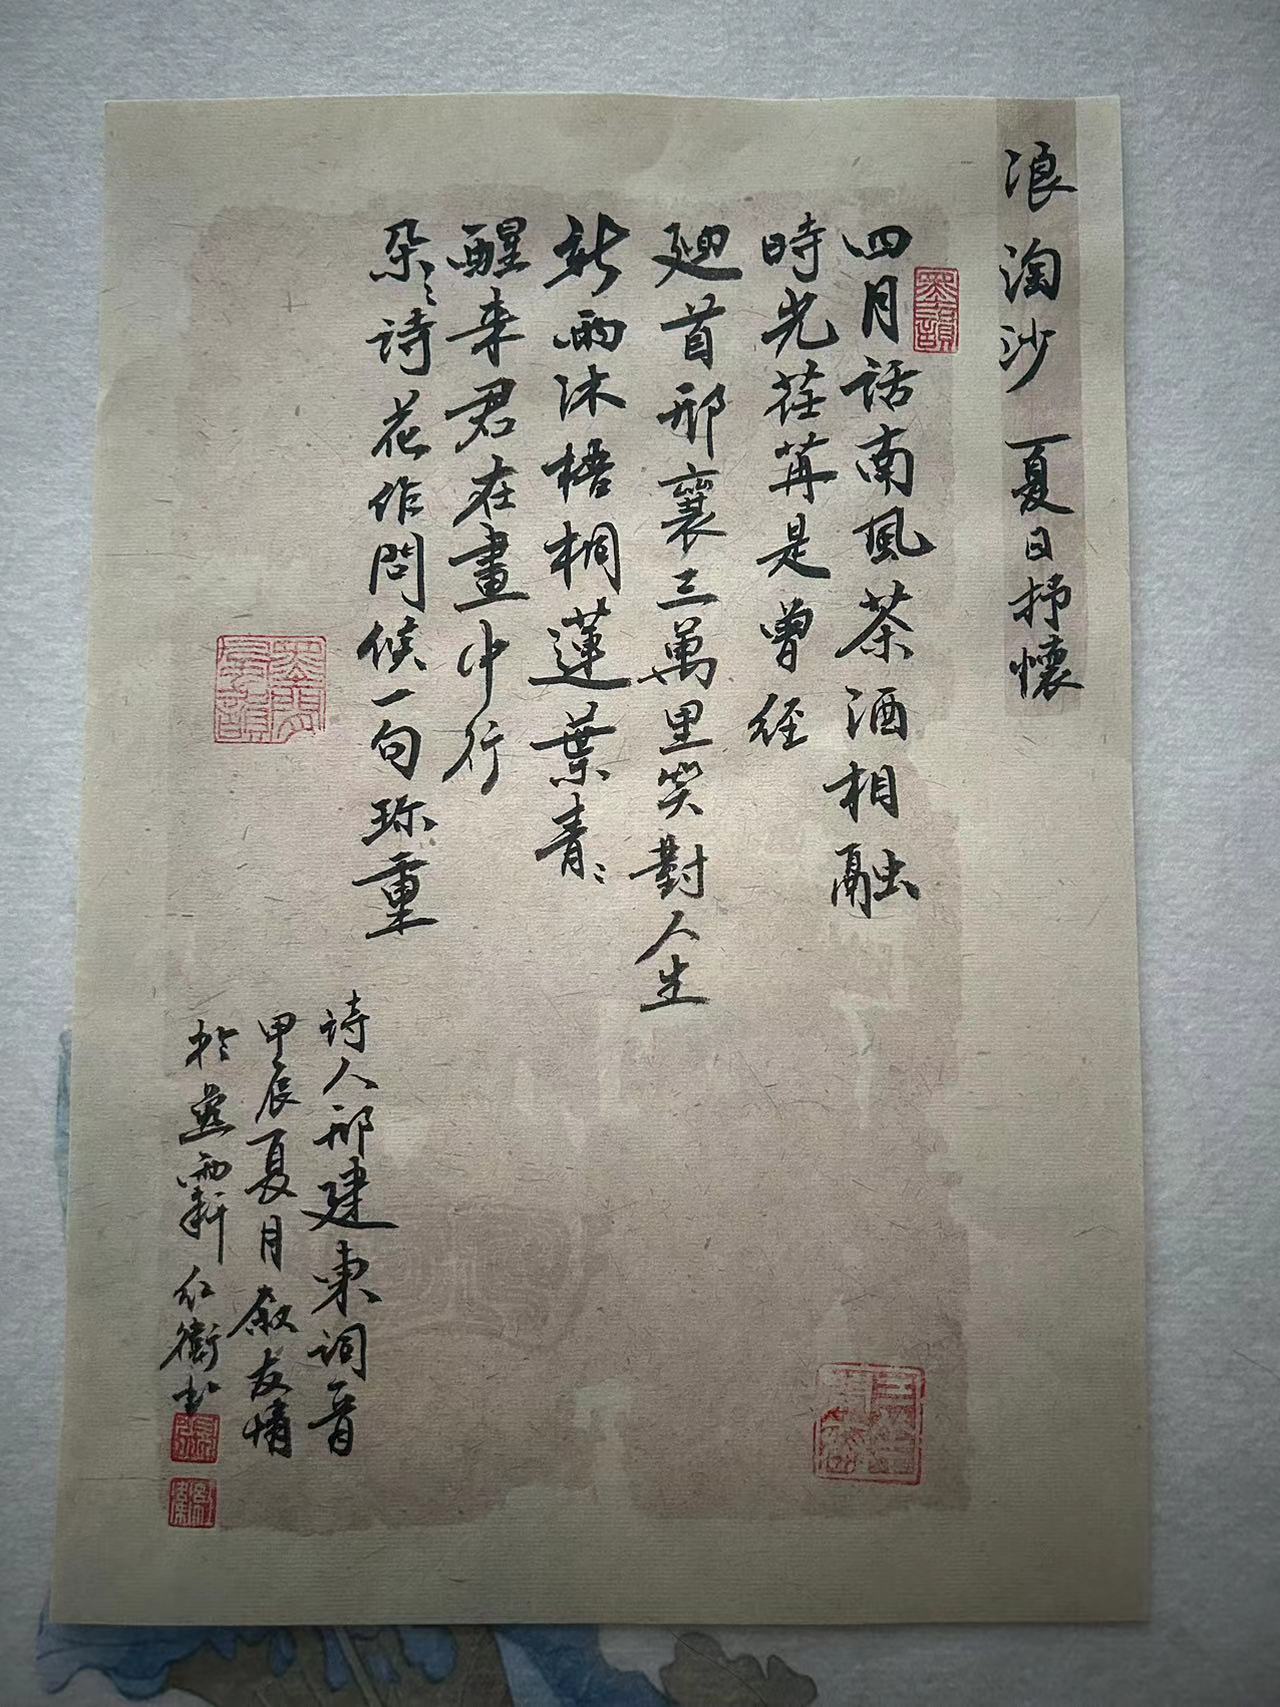 浪淘沙 夏日抒懷
四月話南風茶酒相融
時光荏苒是曾經
廻首邢襄三萬里笑對人生
新雨沐梧桐蓮葉青〻
醒来君在畫中行
朵〻詩花作問候一句珎重
诗人邢建東词一首
甲辰夏月叙友情
於 雨軒红衛书
墨韻